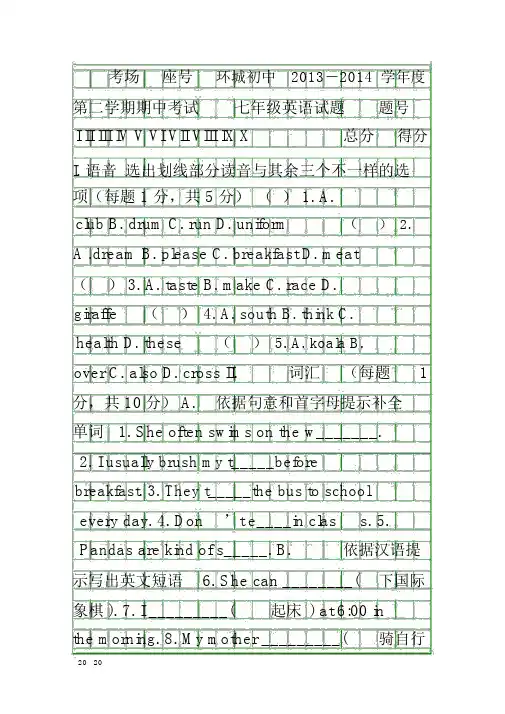 考场 座号 环城初中 2013－2014 学年度
第二学期期中考试 七年级英语试题 题号
I II III IV V VI VII VIII IX X 总分 得分
I. 语音 选出划线部分读音与其余三个不一样的选
项（每题 1 分，共 5 分） （ ）1. A.
club B. drum C. run D. uniform （ ）2.
A .dream B. please C. breakfast D. meat
（ ）3. A. taste B. make C. race D.
giraffe （ ）4. A. south B. think C.
health D. these （ ）5. A. koala B.
over C. also D. cross II. 词汇 （每题 1
分，共 10 分） A. 依据句意和首字母提示补全
单词 1. She often swims on the w_______.
2. I usually brush my t_____before
breakfast. 3. They t_____the bus to school
every day. 4. Don ’t e____in class. 5.
Pandas are kind of s_____. B. 依据汉语提
示写出英文短语 6. She can ________( 下国际
象棋 ). 7. I _________( 起床 ) at 6:00 in
the morning. 8. My mother _________( 骑自行
20 20